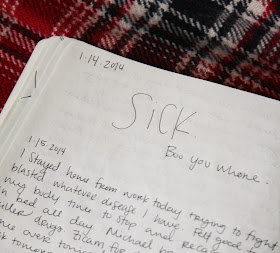 1·14·2014
SICK.
Boo you whore.
1/15·2014
I stayed home from work today trying to figure
blasted whatever disease I have. Felt good to
my body time to stop and recap
in bed all day. Michael
killer drugs. Zicam for
me over
tomor